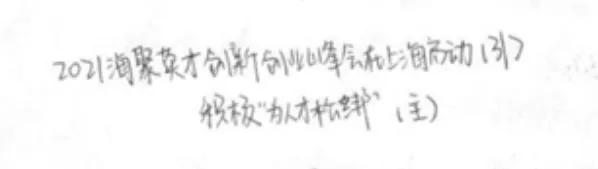 2021海聚英才创新创业峰会在上海启动（引）
积极“为人才松绑”（主）